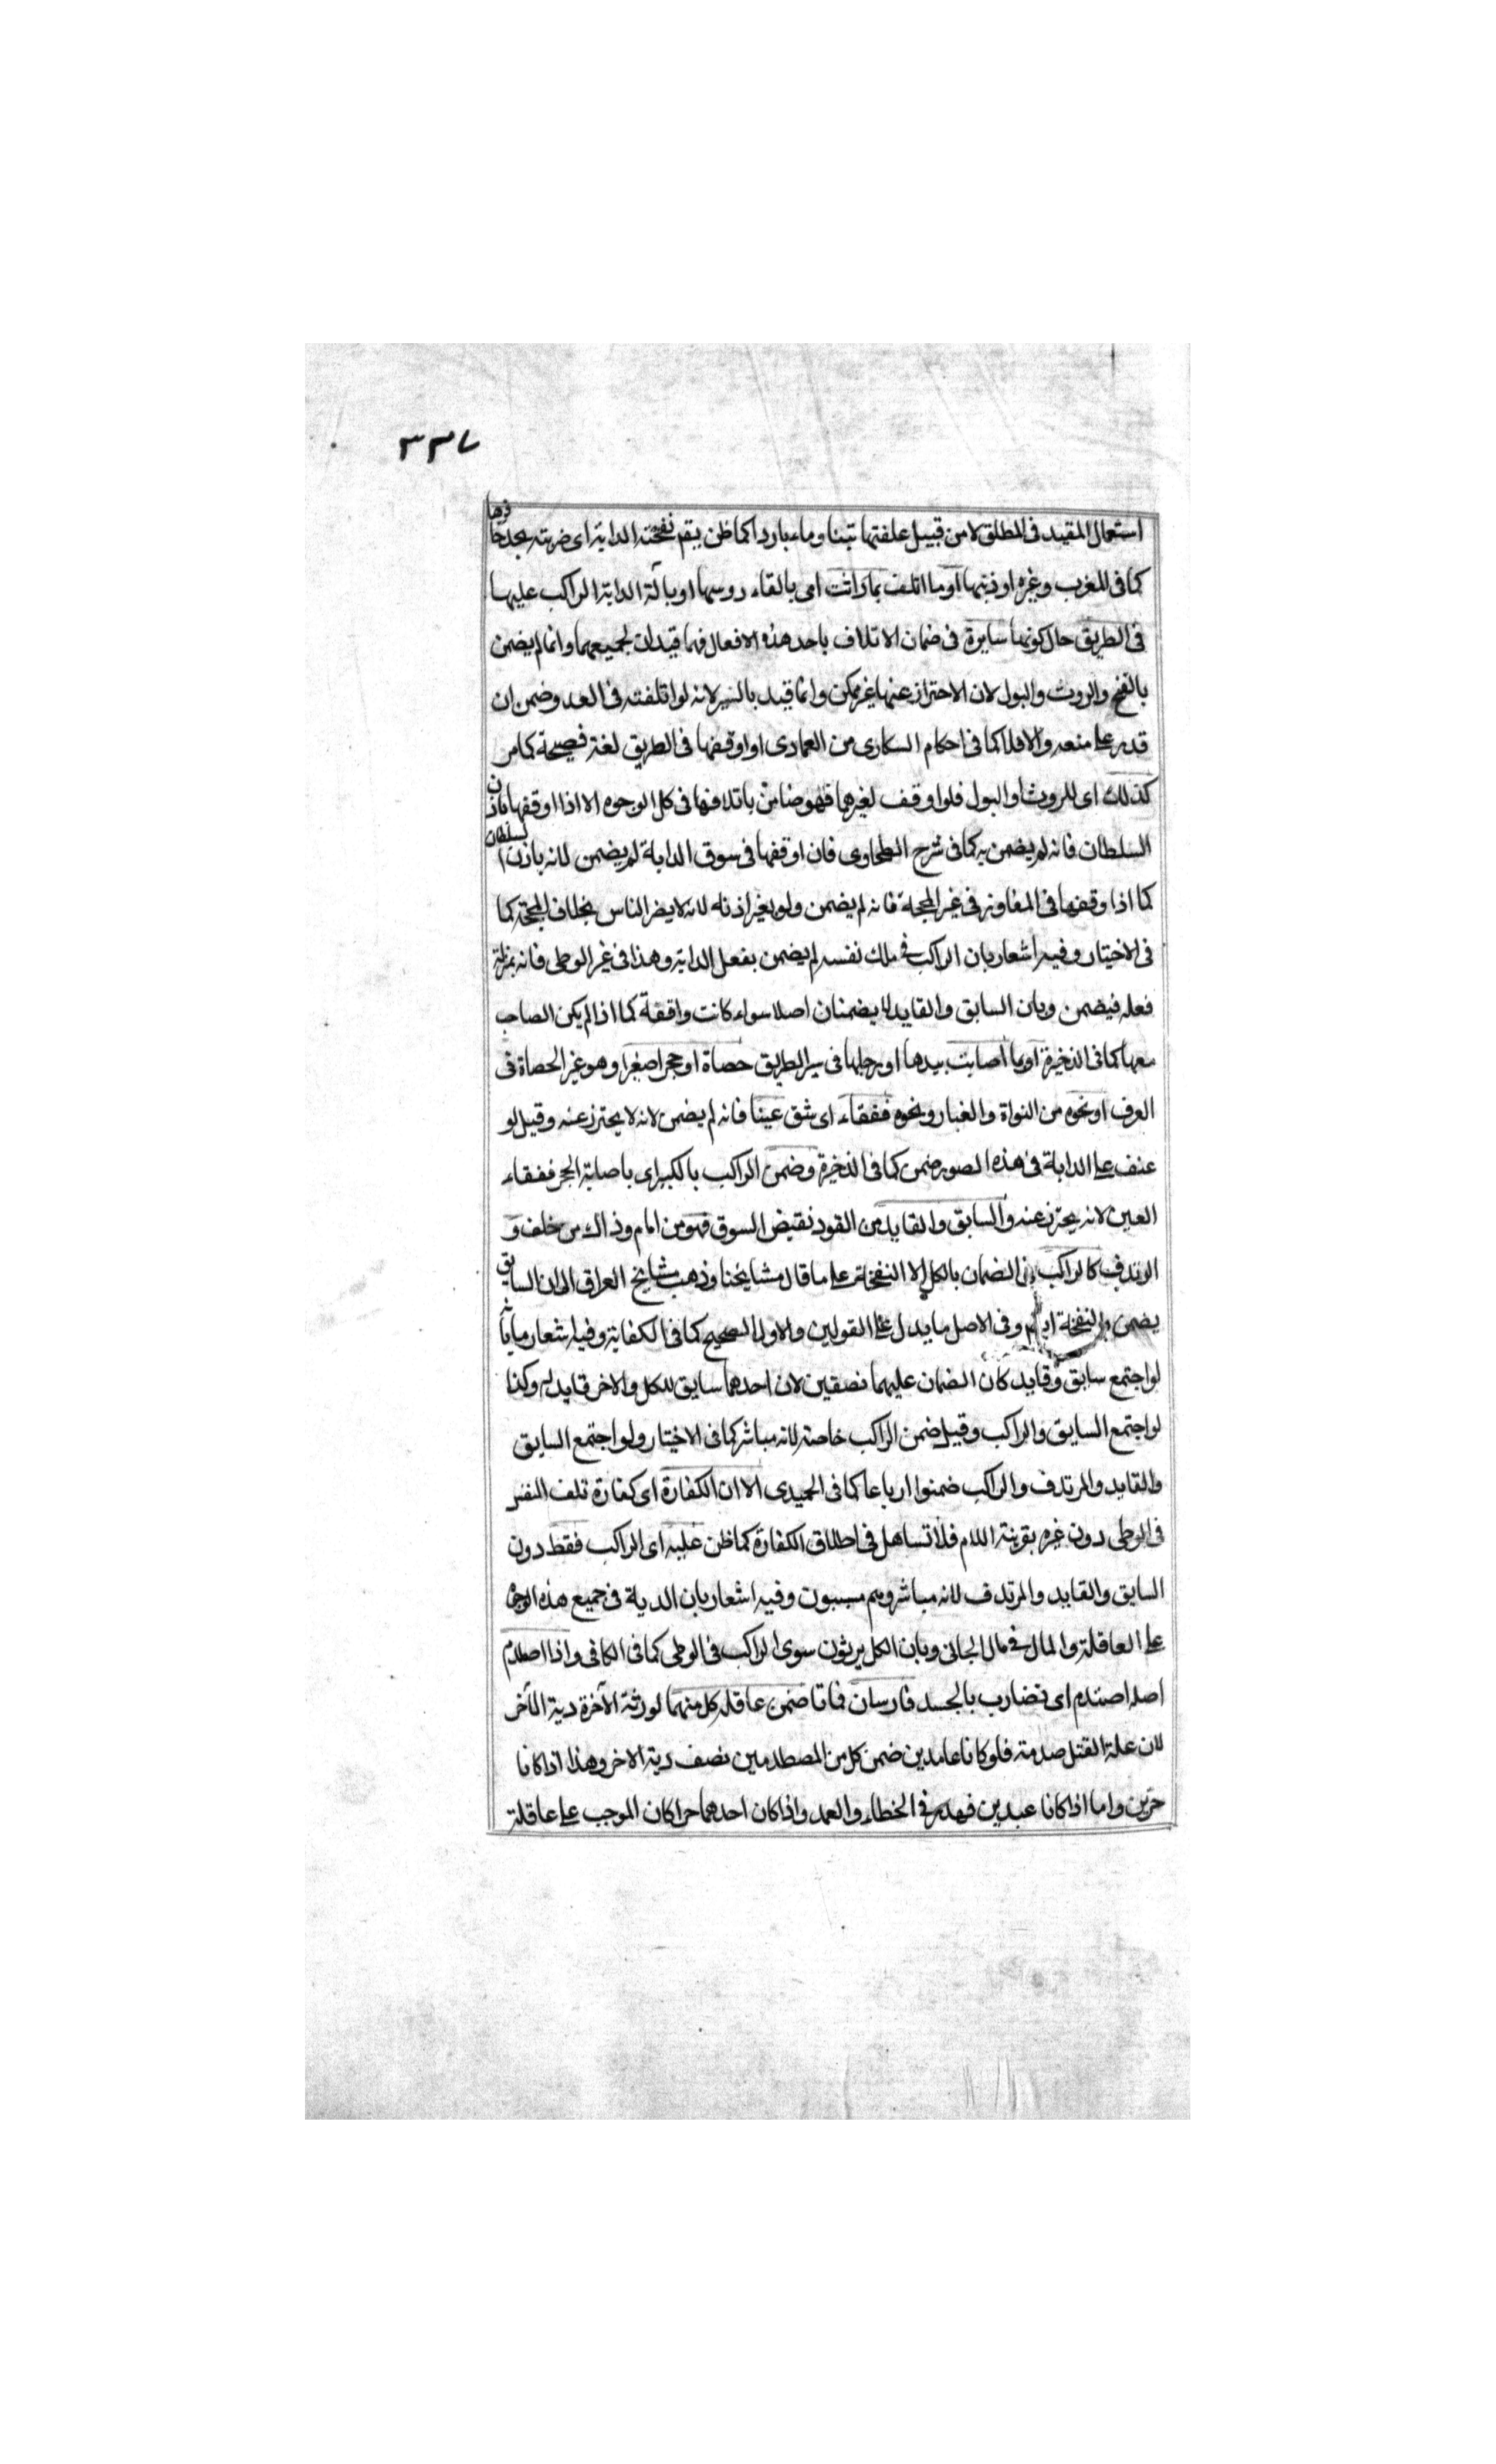 ٣٣٧
استعمال المقيد فى المطلق لا من قبيل علفتها تبنا وماء باردا كما ظن بقم نفحته الدابة اى ضربته بحد حافرها
كما فى المغرب وغيره او ذنبها او ما اتلف بما راثت اى بالقاء روسها او بالة الدابة الراكب عليها
فى الطريق حال كونها سايرة فى ضمان الاتلاف باحد هذه الافعال فهما قيدان لجميعهما وانما لم يضمن
بالنفح والروث والبول لان الاحتراز عنها غير ممكن وانما قيد بالسير لانه لو اتلفته فى العدو ضمن ان
قدر على منعه والا فلا كما فى احكام السكارى من العمادى او اوقفها فى الطريق لغة فصيحة كما مر
كذلك اى للروث او البول فلو اوقف لغيرهما فهو ضامن باتلافها فى كل الوجوه الا اذا اوقفها باذن
السلطان فانه لم يضمن به كما فى شرح الطحاوى فان اوقفها فى سوق الدابة لم يضمن لانه باذن السلطان
كما اذا وقفها فى المفاوز فى غير المحجة فانه لم يضمن ولو بغير اذنه لانه لا يضر الناس بخلاف المحجة كما
فى الاختيار وفيه اشعار بان الراكب فى ملك نفسه لم يضمن بفعل الدابة وهذا فى غير الوطى فانه بمنزلة
فعله فيضمن وبان السابق والقايد لا يضمنان اصلا سواء كانت واقفة كما اذا لم يكن الصاحب
معها كما فى الذخيرة او بما اصابت بيدها او رجلها فى سير الطريق حصاة او حجرا صغيرا وهو غير الحصاة فى
العرف او نحوه من النواة والغبار ونحوه ففقاء اى شق عينا فانه لم يضمن لانه لا يحترز عنه وقيل لو
عنف على الدابة فى هذه الصور ضمن كما فى الذخيرة وضمن الراكب بالكبير اى باصابة الحجر ففقاء
العين لانه يحترز عنه والسابق والقايد من القود نقيض السوق فهو من امام وذاك من خلف و
المرتدف كالراكب فى الضمان بالكل الا النفخة على ما قال مشايخنا وذهب مشايخ العراق الى ان السايق
يضمن بالنفخة وفى الاصل ما يدل على القولين والاول الصحيح كما فى الكفاية وفيه اشعار بانه
لو اجتمع سابق وقايد كان الضمان عليهما نصفين لان احدهما سايق للكل والاخر قايد له وكذا
لو اجتمع السايق والراكب وقيل ضمن الراكب خاصة لانه مباشر كما فى الاختيار ولو اجتمع السايق
والقايد والمرتدف والراكب ضمنوا ارباعا كما فى الحميدى الا ان الكفارة اى كفارة تلف النفس
فى الوطى دون غيره بقرينة اللام فلا تساهل فى اطلاق الكفارة كما ظن عليه اى الراكب فقط دون
السايق والقايد والمرتدف لانه مباشر وهم مسببون وفيه اشعار بان الدية فى جميع هذه الوجوه
على العاقلة والمال فى مال الجانى وبان الكل يرثون سوى الراكب فى الوطى كما فى الكافى واذا اصطدم
اصله اصتدم اى تضارب بالجسد فارسان فماتا ضمن عاقلة كل منهما لورثة الآخرة دية الآخر
لان علة القتل صدمته فلو كانا عامدين ضمن كل من المصطدمين نصف دية الاخر وهذا اذا كانا
حرين واما اذا كانا عبدين فهدر فى الخطاء والعمد واذا كان احدهما حرا كان الموجب على عاقلة